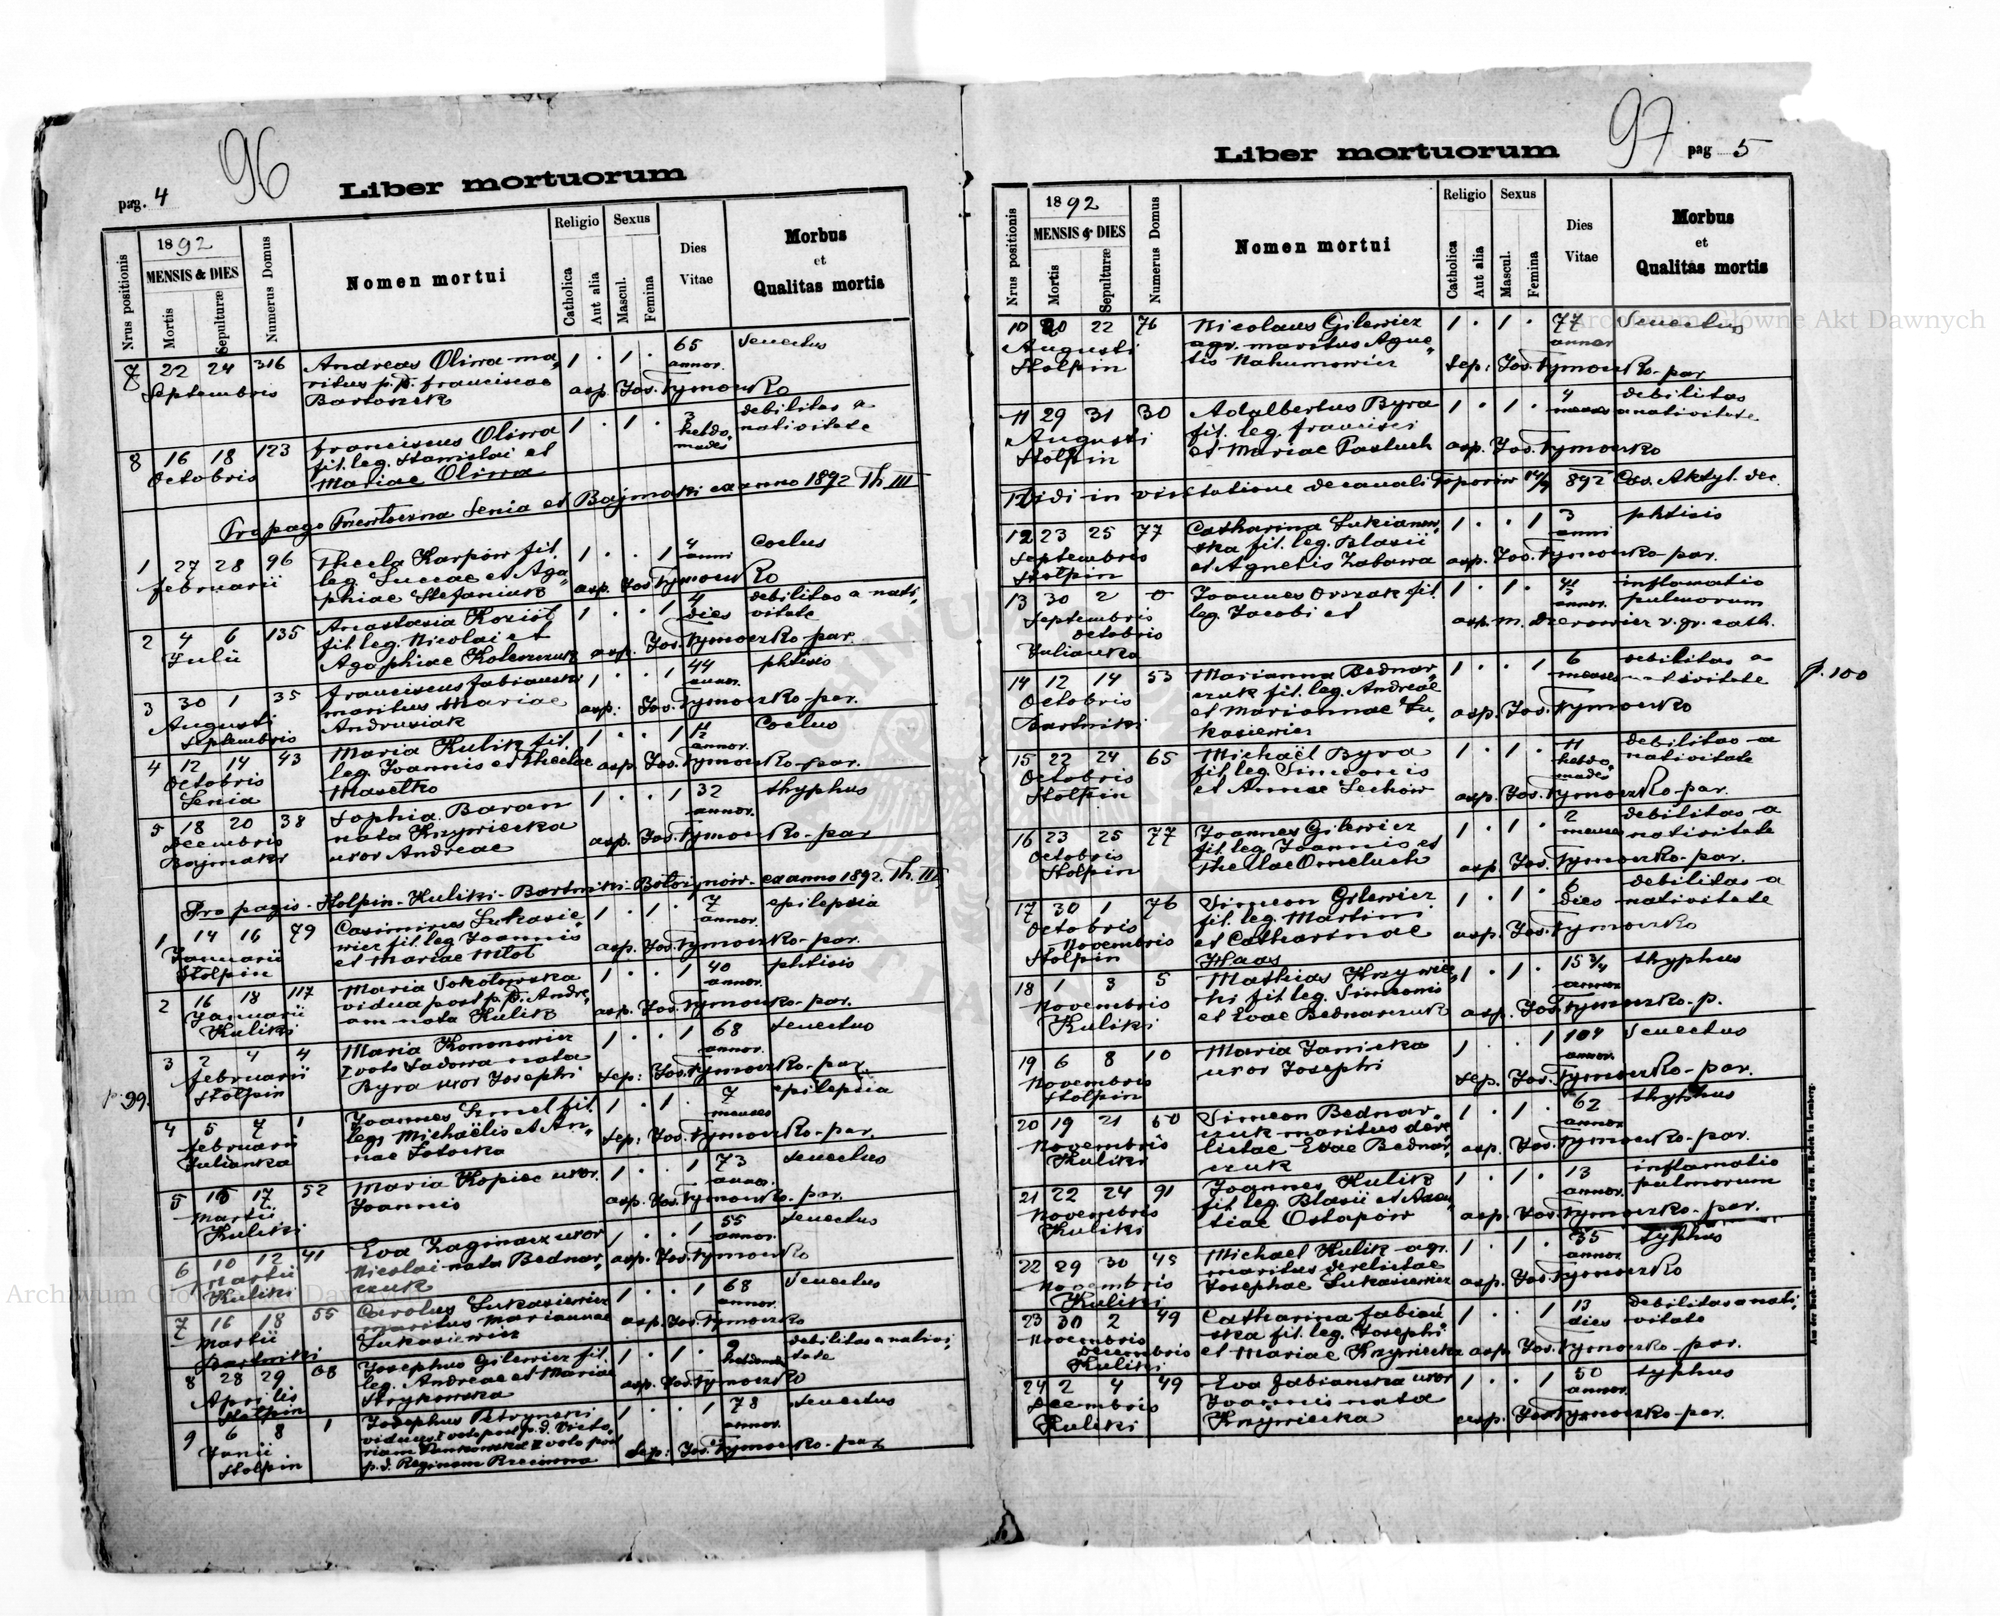 96
pag. 4
Liber mortuorum
Nrus positionis
1892
MENSIS & DIES
Mortis
Sepulturæ
Numerus Domus
Nomen mortui
Religio
Catholica
Aut alia
Sexus
Mascul.
Femina
Dies
Vitae
Morbus
et
Qualitas mortis
7 22 24 316 Andreas Oliwa ma- 1 . 1 . 65 Senectus
Septembris ritus p. d. Franciscae annor.
Bartoszik asp. Jos. Tymoczko
8 16 18 123 Franciscus Oliwa 1 . 1 . 3 debilitas a
Octobris fil. leg. Stanislai et hebdo- nativitate
Mariae Oliwa mades
Pro pago Senia et Bajmaki ex anno 1892 Th III
1 27 28 96 Thecla Karpów fil. 1 . . 1 4 Coclus
Februarii leg. Lucae et Aga- anni
phiae Stefaniuk asp. Jos. Tymoczko
2 4 6 135 Anastasia Kozioł 1 . . 1 4 debilitas a nati-
Julii fil. leg. Nicolai et dies vitate
Agaphiae asp. Jos. Tymoczko par.
3 30 1 35 Franciscus Fabianski 1 . . 1 44 phtisis
Augusti maritus Mariae annor.
Septembris Andrusiak asp: Jos. Tymoczko-par.
4 12 14 43 Maria Kulik fil. 1 . . 1 Coclus
Octobris leg. Joannis et Theclae annor.
Senia asp. Jos. Tymoczko-par.
5 18 20 38 Sophia Baran 1 . . 1 32 thyphus
Decembris nata Krzywiecka annor.
Bajmaki uxor Andreae asp. Jos. Tymoczko-par
Pro pagis - Stolpin - Kuliki - Bartniki - ex anno 1892. Th. III
1 14 16 79 Casimirus Lukasie- 1 . 1 . 7 epilepsia
Januarii wicz fil. leg. Joannis annor.
Stolpin et Mariae asp. Jos. Tymoczko-par.
2 16 18 117 Maria Sokołowska 1 . . 1 40 phtisis
Januarii vidua post p. d. Andre- annor.
Kuliki am nata Kulik asp. Jos. Tymoczko-par.
3 2 4 4 Maria Kononowicz 1 . . 1 68 senectus
Februarii I voto Sadowa nata annor.
Stolpin Byra uxor Josephi Sep: Jos. Tymoczko-par.
p. 99.
4 5 7 1 Joannes fil. 1 . 1 . 7 epilepsia
Februarii leg. Michaëlis et An- menses
Julianka nae Sep: Jos. Tymoczko-par.
5 15 17 52 Maria Kopiec uxor 1 . . 1 73 senectus
Martii Joannis annor.
Kuliki asp. Jos. Tymoczko-par.
6 10 12 41 Eva uxor 1 . . 1 55 senectus
Martii Nicolai nata Bednar- annor.
Kuliki czuk asp. Jos. Tymoczko
7 16 18 55 Carolus Lukasiewicz 1 . . 1 68 senectus
Martii maritus Mariannae annor.
Bartniki Lukasiewicz asp. Jos. Tymoczko
8 28 29 Josephus Gilewicz fil. 1 . 1 . 9 debilitas a nativi-
Aprilis leg. Andreae et Mariae tate
Stolpin Strykowska asp. Jos. Tymoczko
9 6 8 1 Josephus 1 . . 1 78 senectus
Junii viduus I voto post p. d. Victo- annor.
Stolpin riam II voto post
p. d. Reginam Sep: Jos. Tymoczko-par
97
Liber mortuorum
pag 5
Nrus positionis
1892
MENSIS & DIES
Mortis
Sepulturæ
Numerus Domus
Nomen mortui
Religio
Catholica
Aut alia
Sexus
Mascul.
Femina
Dies
Vitae
Morbus
et
Qualitas mortis
10 20 22 76 Nicolaus Gilewicz 1 . 1 . 77 Senectus
Augusti agr. maritus Agne- annor
Stolpin tis Nahumowicz Sep: Jos. Tymoczko-par
11 29 31 30 Adalbertus Byra 1 . 1 . 4 debilitas
Augusti fil. leg. Francisci menses a nativitate
Stolpin et Mariae Pastuch asp. Jos. Tymoczko
Vidi in visitatione decanali Toporów 892 Cas. Aksyl. dec.
12 23 25 77 Catharina Lukianow- 1 . . 1 3 phtisis
Septembris ska fil. leg. Blasii anni
Stolpin et Agnetis Zabawa asp. Jos. Tymoczko-par.
13 30 2 0 Joannes fil. 1 . 1 . inflamatio
Septembris leg. Jacobi et annor. pulmorum
Octobris asp. M. r. gr. cath.
Julianka
14 12 14 53 Marianna Bednar- 1 . . 1 6 debilitas a
Octobris czuk fil. leg. Andreae menses nativitate
Bartniki et Mariannae Lu- asp. Jos. Tymoczko
kasiewicz
p. 100
15 22 24 65 Michaël Byra 1 . 1 . 11 debilitas a
Octobris fil. leg. Simeonis hebdo- nativitate
Stolpin et Annae Lechów mades
asp. Jos. Tymoczko-par.
16 23 25 77 Joannes Gilewicz 1 . 1 . 2 debilitas a
Octobris fil. leg. Joannis et menses nativitate
Stolpin Theclae Omeluch asp. Jos. Tymoczko-par.
17 30 1 76 Simeon Gilewicz 1 . 1 . 6 debilitas a
Octobris fil. leg. Martini dies nativitate
Novembris et Catharinae asp. Jos. Tymoczko
Stolpin Haas
18 1 3 5 Mathias Krzywiec- 1 . 1 . 15 3/4 thyphus
Novembris ki fil. leg. Simeonis annor
Kuliki et Evae Bednarczuk asp. Jos. Tymoczko-p.
19 6 8 10 Maria Janicka 1 . 1 104 Senectus
Novembris uxor Josephi annor.
Stolpin Sep. Jos. Tymoczko-par.
20 19 21 60 Simeon Bednar- 1 . 1 . 62 thyphus
Novembris czuk maritus dere- annor
Kuliki lictae Evae Bednar- asp. Jos. Tymoczko-par.
czuk
21 22 24 91 Joannes Kulik 1 . 1 . 13 inflamatio
Novembris fil. leg. Blasii et Anas- annor. pulmorum
Kuliki tiae Ostapów asp. Jos. Tymoczko-par.
22 29 30 45 Michael Kulik agr. 1 . 1 . 35 typhus
Novembris maritus derelictae annor
Kuliki Josephae Lukasiewicz asp. Jos. Tymoczko
23 30 2 49 Catharina Fabian- 1 . . 1 13 debilitas a nati-
Novembris ska fil. leg. Josephi dies vitate
Decembris et Mariae Krzywiecka asp. Jos. Tymoczko-par.
Kuliki
24 2 4 49 Eva Fabianska uxor 1 . . 1 50 typhus
Decembris Joannis nata annor.
Kuliki Krzywiecka asp. Jos. Tymoczko-par.
Aus der Buch- und Steindruckerei des in Lemberg.
Archiwum Główne Akt Dawnych
Archiwum Główne Akt Dawnych